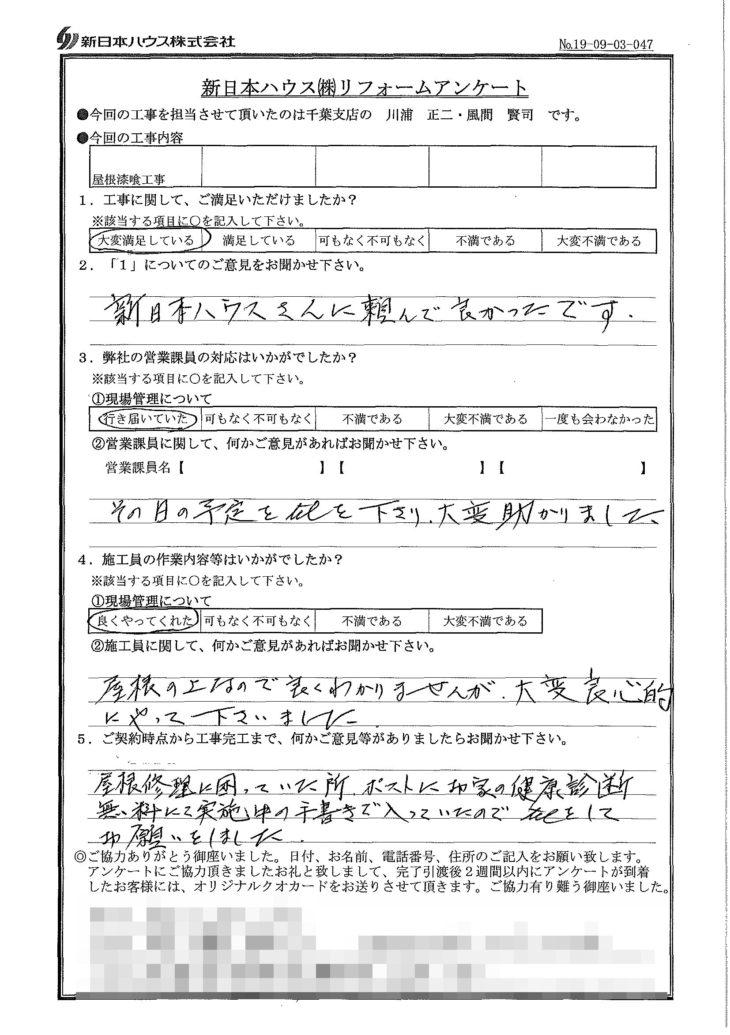 新日本ハウス株式会社
№19-09-03-047
新日本ハウス㈱リフォームアンケート
●今回の工事を担当させて頂いたのは千葉支店の 川浦 正二・風間 賢司 です。
●今回の工事内容
屋根漆喰工事
1．工事に関して、ご満足いただけましたか？
※該当する項目に○を記入して下さい。
大変満足している 満足している 可もなく不可もなく 不満である 大変不満である
2．「1」についてのご意見をお聞かせ下さい。
新日本ハウスさんに頼んで良かったです．
3．弊社の営業課員の対応はいかがでしたか？
※該当する項目に○を記入して下さい。
①現場管理について
行き届いていた 可もなく不可もなく 不満である 大変不満である 一度も会わなかった
②営業課員に関して、何かご意見があればお聞かせ下さい。
営業課員名【 】【 】【 】
その日の予定を 𛀁を下さり、大変助かりました、
4．施工員の作業内容等はいかがでしたか？
※該当する項目に○を記入して下さい。
①現場管理について
良くやってくれた 可もなく不可もなく 不満である 大変不満である
②施工員に関して、何かご意見があればお聞かせ下さい。
屋根の上なので良くわかりませんが、大変良心的
にやって下さいました．
5．ご契約時点から工事完工まで、何かご意見等がありましたらお聞かせ下さい。
屋根修理に困っていた所、ポストに お家の健康診断
無料にて実施中の手書きで入っていたので をして
お願いをしました．
◎ご協力ありがとう御座いました。日付、お名前、電話番号、住所のご記入をお願い致します。
アンケートにご協力頂きましたお礼と致しまして、完了引渡後２週間以内にアンケートが到着
したお客様には、オリジナルクオカードをお送りさせて頂きます。ご協力有り難う御座いました。